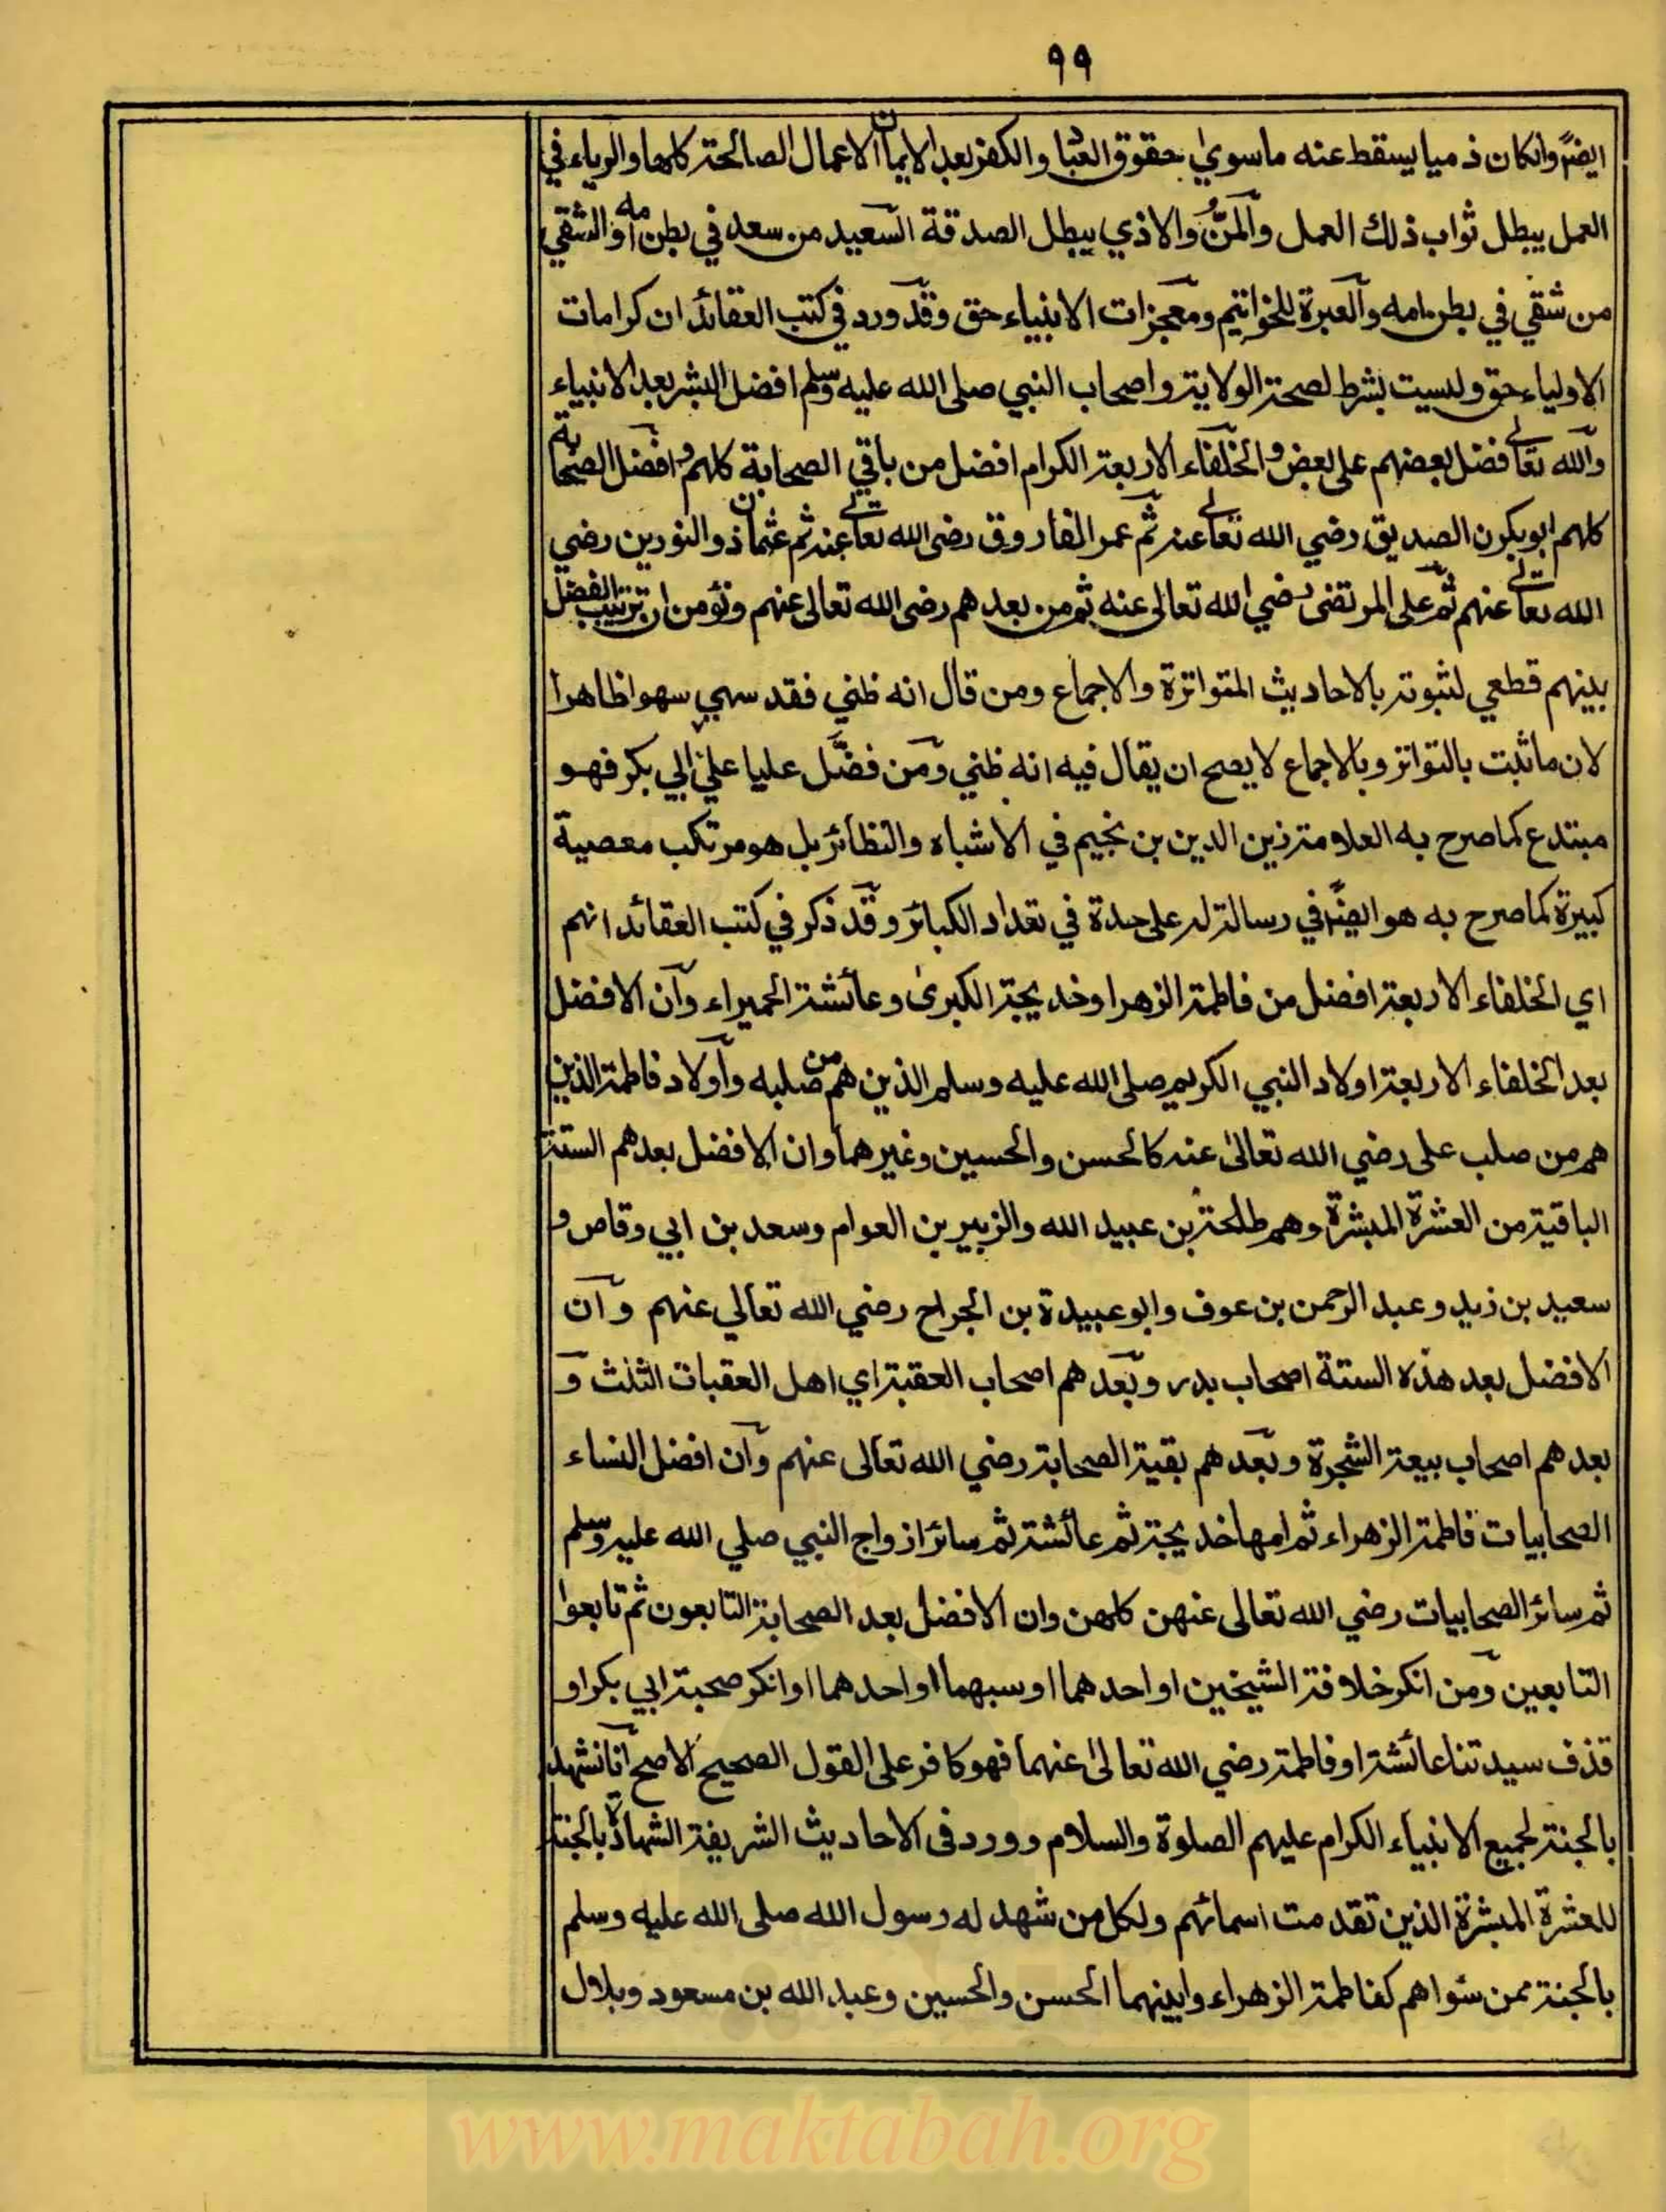 ٩٩
ايضًا وان كان ذميا يسقط عنه ما سوي حقوق العباد والكفر بعد الايمان الاعمال الصالحة كلها والرياء في
العمل يبطل ثواب ذلك العمل والمَنُّ والاذي يبطل الصدقة السعيد من سعد في بطن امه والشقي
من شقي في بطن امه والعبرة للخواتيم ومعجزات الانبياء حق وقد ورد في كتب العقائد ان كرامات
الاولياء حق وليست بشرط لصحة الولاية واصحاب النبي صلى الله عليه وسلم افضل البشر بعد الانبياء
والله تعالے فضل بعضهم على بعض والخلفاء الاربعة الكرام افضل من باقي الصحابة كلهم وافضل الصحابة
كلهم ابو بكرن الصديق رضي الله تعالے عنه ثم عمر الفاروق رضى الله تعالے عنه ثم عثمان ذو النورين رضي
الله تعالے عنهم ثم على المرتضى رضي الله تعالى عنه ثم من بعدهم رضى الله تعالى عنهم ونؤمن ان ترتيب الفضل
بينهم قطعي لثبوته بالاحاديث المتواترة والاجماع ومن قال انه ظني فقد سهي سهوا ظاهرا
لان ما ثبت بالتواتر وبالاجماع لا يصح ان يقال فيه انه ظني ومن فضَّل عليا علي ابي بكر فهو
مبتدع كما صرح به العلامة زين الدين بن نجيم في الاشباه والنظائر بل هو مرتكب معصية
كبيرة كما صرح به هو ايضًا في رسالة له على حدة في تعداد الكبائر وقد ذكر في كتب العقائد انهم
اي الخلفاء الاربعة افضل من فاطمة الزهرا وخديجة الكبرى وعائشة الحميراء وان الافضل
بعد الخلفاء الاربعة اولاد النبي الكريم صلى الله عليه وسلم الذين هم من صلبه واولاد فاطمة الذين
هم من صلب على رضي الله تعالى عنه كالحسن والحسين وغيرهما وان الافضل بعدهم الستة
الباقية من العشرة المبشرة وهم طلحة بن عبيد الله والزبير بن العوام وسعد بن ابي وقاص و
سعيد بن زيد وعبد الرحمن بن عوف وابو عبيدة بن الجراح رضي الله تعالي عنهم وان
الافضل بعد هذه الستة اصحاب بدر وبعدهم اصحاب العقبة اي اهل العقبات الثلث و
بعدهم اصحاب بيعة الشجرة وبعدهم بقية الصحابة رضي الله تعالى عنهم وان افضل النساء
الصحابيات فاطمة الزهراء ثم امها خديجة ثم عائشة ثم سائر ازواج النبي صلي الله عليه وسلم
ثم سائر الصحابيات رضي الله تعالى عنهن كلهن وان الافضل بعد الصحابة التابعون ثم تابعوا
التابعين ومن انكر خلافة الشيخين او احدهما او سبهما او احدهما او انكر صحبة ابي بكر او
قذف سيدتنا عائشة او فاطمة رضي الله تعالى عنهما فهو كافر على القول الصحيح الاصح انا نشهد
بالجنة لجميع الانبياء الكرام عليهم الصلوة والسلام وورد فى الاحاديث الشريفة الشهادة بالجنة
للعشرة المبشرة الذين تقدمت اسمائهم ولكل من شهد له رسول الله صلى الله عليه وسلم
بالجنة ممن سواهم كفاطمة الزهراء وابنيهما الحسن والحسين وعبد الله بن مسعود وبلال
www.maktabah.org